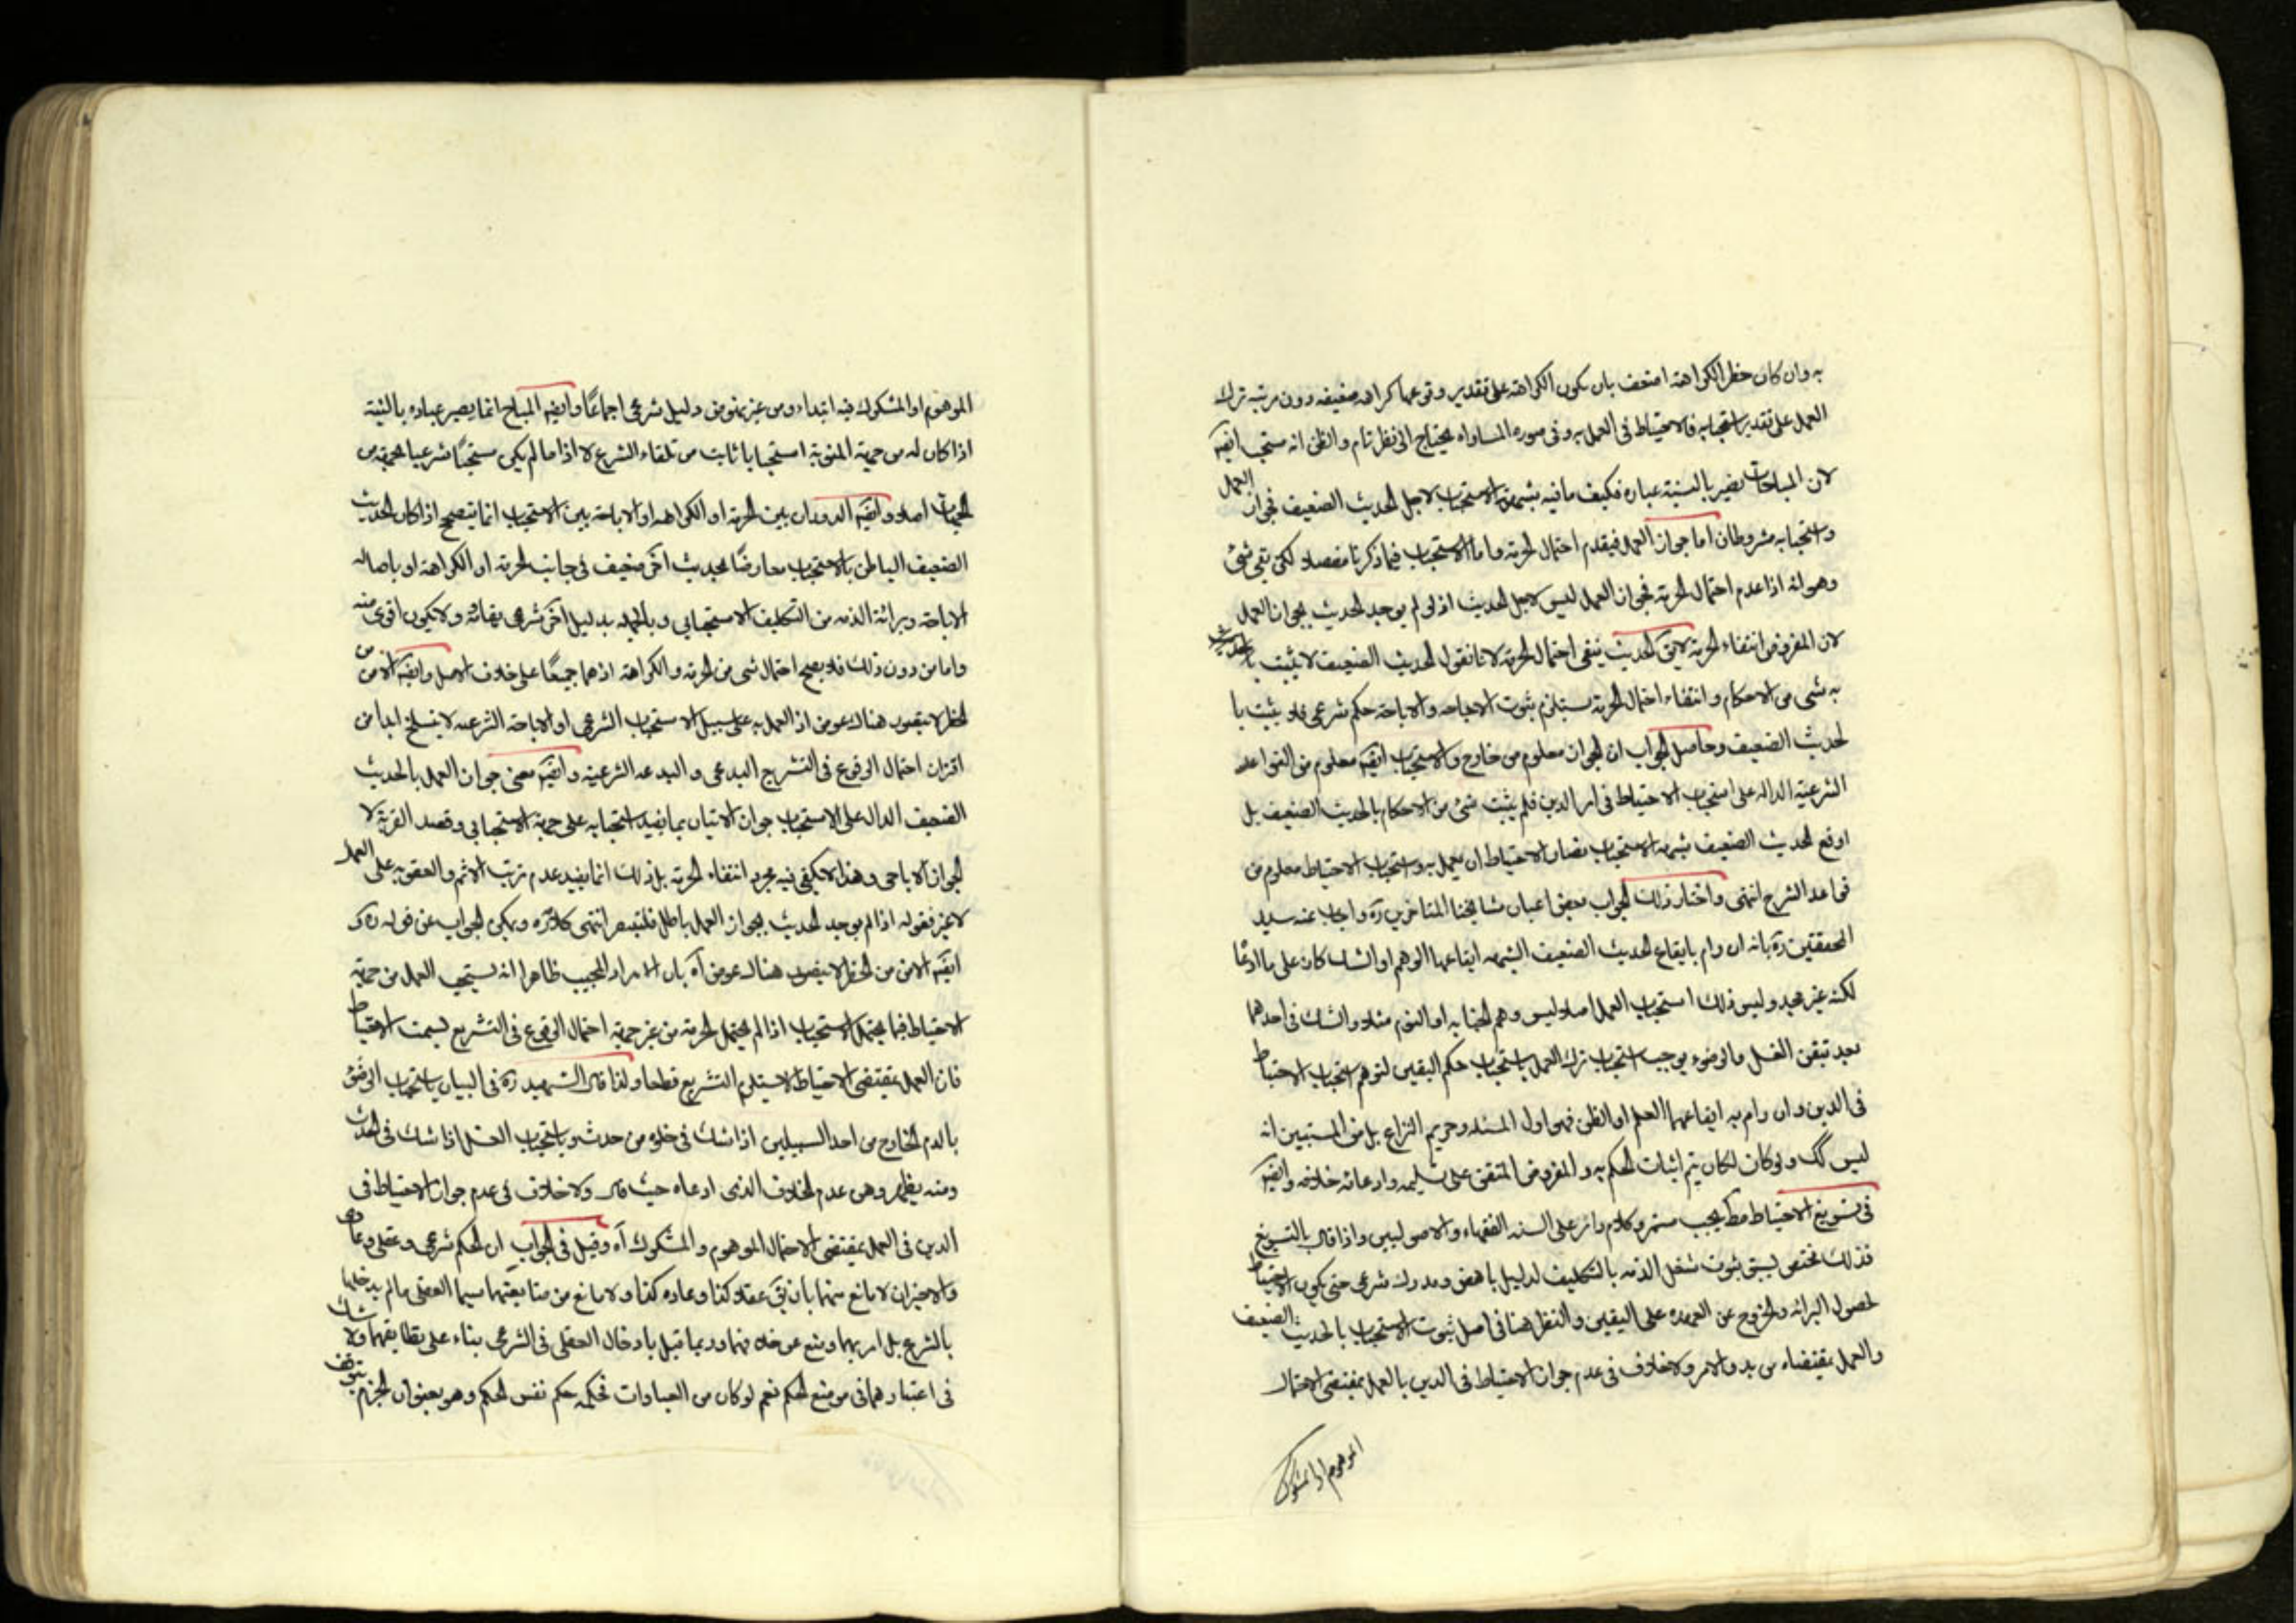 به وان كان خطر الكراهة اضعف بان يكون الكراهة على تقدير وقوعها كراهة ضعيفه دون مرتبه ترك
العمل على تقدير استحبابه فالاحتياط فى العمل به وفى صورة المساواه يحتاج الى نظر تام والظن انه مستحب ايضا
لان المباحات تصير بالنية عباده فكيف ما فيه شبهة الاستحباب لاجل الحديث الضعيف فجواز العمل
واستحبابه مشروطان اما جواز العمل فبعدم احتمال الحرمة واما الاستحباب فبما ذكرنا مفصلا لكن بقى شئ
وهو انه اذا عدم احتمال الحرمة فجواز العمل ليس لاجل الحديث اذ لو لم يوجد الحديث يجوز العمل
لان المفروض انتفاء الحرمة لا يق الحديث ينفى احتمال الحرمة لانا نقول الحديث الضعيف لا يثبت
به شى من الاحكام وانتفاء احتمال الحرمة يستلزم ثبوت الاباحه والاباحة حكم شرعى فلا يثبت با
لحديث الضعيف وحاصل الجواب ان الجواز معلوم من خارج والاستحباب ايضا معلوم من القواعد
الشرعية الداله على استحباب الاحتياط فى امر الدين فلم يثبت شئ من الاحكام بالحديث الضعيف بل
اوقع الحديث الضعيف شبهة الاستحباب فصار الاحتياط ان يعمل به واستحباب الاحتياط معلوم من
قواعد الشرع انتهى واختار ذلك الجواب بعض اعيان مشايخنا المتاخرين ره واجاب عنه سيد
المحققين ره بانه ان رام بايقاع الحديث الضعيف الشبهه ايقاعها الوهم او الشك كان على ما ادعا
لكنه غير مجد وليس ذلك استحباب العمل اصلا وليس وهم الجنابه او النوم مثلا والشك فى احدهما
بعد تيقن الغسل والوضوء يوجب استحباب ترك العمل باستحباب حكم اليقين لتوهم استحباب الاحتياط
فى الدين وان رام به ايقاعهما العلم او الظن فهو اول المسئله وحريم النزاع بل من المستبين انه
ليس كك ولو كان لكان يتم اثبات الحكم به والمفروض المتفق على تسليمه وادعائه خلافه وايضا
فى تسويغ الاحتياط مط كلام دائر على السنه الفقهاء والاصوليين واذا قال بالتسويغ
فذلك مختص بسبق ثبوت شغل الذمه بالتكليف لدليل ناهض ومدرك شرعى حتى يكون الاحتياط
لحصول البرائه والخروج عن العهده على اليقين والنظر هنا فى اصل ثبوت الاستحباب بالحديث الضعيف
والعمل بمقتضاه من بدو الامر ولا خلاف فى عدم جواز الاحتياط فى الدين بالعمل بمقتضى الاحتمال
الموهوم او المشكوك
الموهوم او المشكوك فيه ابتداء ومن غير دليل شرعى اجماعًا وايضا المباح انما يصير عباده بالنية
اذا كان له من جهة المنوية استحبابا ثابت من تلقاء الشرع لا اذا ما لم يكن مستحبًا شرعيا بجهة من
الجهات اصلا وايضا الدوران بين الحرمة او الكراهة او الاباحة بين الاستحباب انما يتصحح اذا كان الحديث
الضعيف الناطق بالاستحباب معارضًا بحديث آخر ضعيف فى جانب الحرمة او الكراهة او باصاله
الاباحة وبرائة الذمه من التكليف الاستحبابى وبالجمله بدليل آخر شرعى ولا يكون اقوى منه
واما من دون ذلك فلا يصح احتمال شى من الحرمة والكراهة اذ هما جميعًا على خلاف الاصل وايضا الامن من
الخطر لا يتصور هناك عوض اذ العمل به على سبيل الاستحباب الشرعى او الاباحة الشرعيه لا ينسلخ ابدا من
اقتران احتمال الوقوع فى التشريع البدعى والبدعه الشرعية وايضا معنى جواز العمل بالحديث
الضعيف الدال على الاستحباب جواز الاتيان بما يفيد استحبابه على جهة الاستحبابى وقصد القربة لا
الجواز الاباحى وهذا لا يكفى فيه مجرد انتفاء الحرمة بل ذلك انما يفيد عدم ترتب الاثم والعقوبه على العمل
لا غير فقوله اذا لم يوجد الحديث يجوز العمل باطل فليتبصر انتهى كلامه ره ويمكن الجواب عن قوله ره و
ايضا الامن من الخطر لا يتصور هناك عوض آه بان المراد المجيب ظاهرا انه يستحب العمل من جهة
الاحتياط فيما يحتمل الاستحباب اذا لم يحتمل الحرمة من غير جهة احتمال الوقوع فى التشريع الاحتياط
فان العمل بمقتضى الاحتياط لا يستلزم التشريع قطعا ولذا قال الشهيد ره فى البيان باستحباب الوضوء
بالدم الخارج من احد السبيلين اذا شك فى خلوه من حدث وباستحباب الغسل اذا شك فى الحدث
ومنه يظهر وهن عدم الخلاف الذى ادعاه حيث قال ولا خلاف فى عدم جواز الاحتياط فى
الدين فى العمل بمقتضى الاحتمال الموهوم والمشكوك آه وقيل فى الجواب ان الحكم شرعى وعقلى وعادى
والاخيران لا مانع منهما بان يق عقلا كذا وعاده كذا ولا مانع من متابعتهما سيما العقلى ما لم يدخلها
بالشرع بل امر بهما ومنع عن خلافهما وربما قيل بادخال العقلى فى الشرعى بناء على تطابقهما ولا شك
فى اعتبارهما فى موضع الحكم نعم لو كان من العبادات فحكمه حكم نفس الحكم وهو بعينه ان الجزم يتوقف